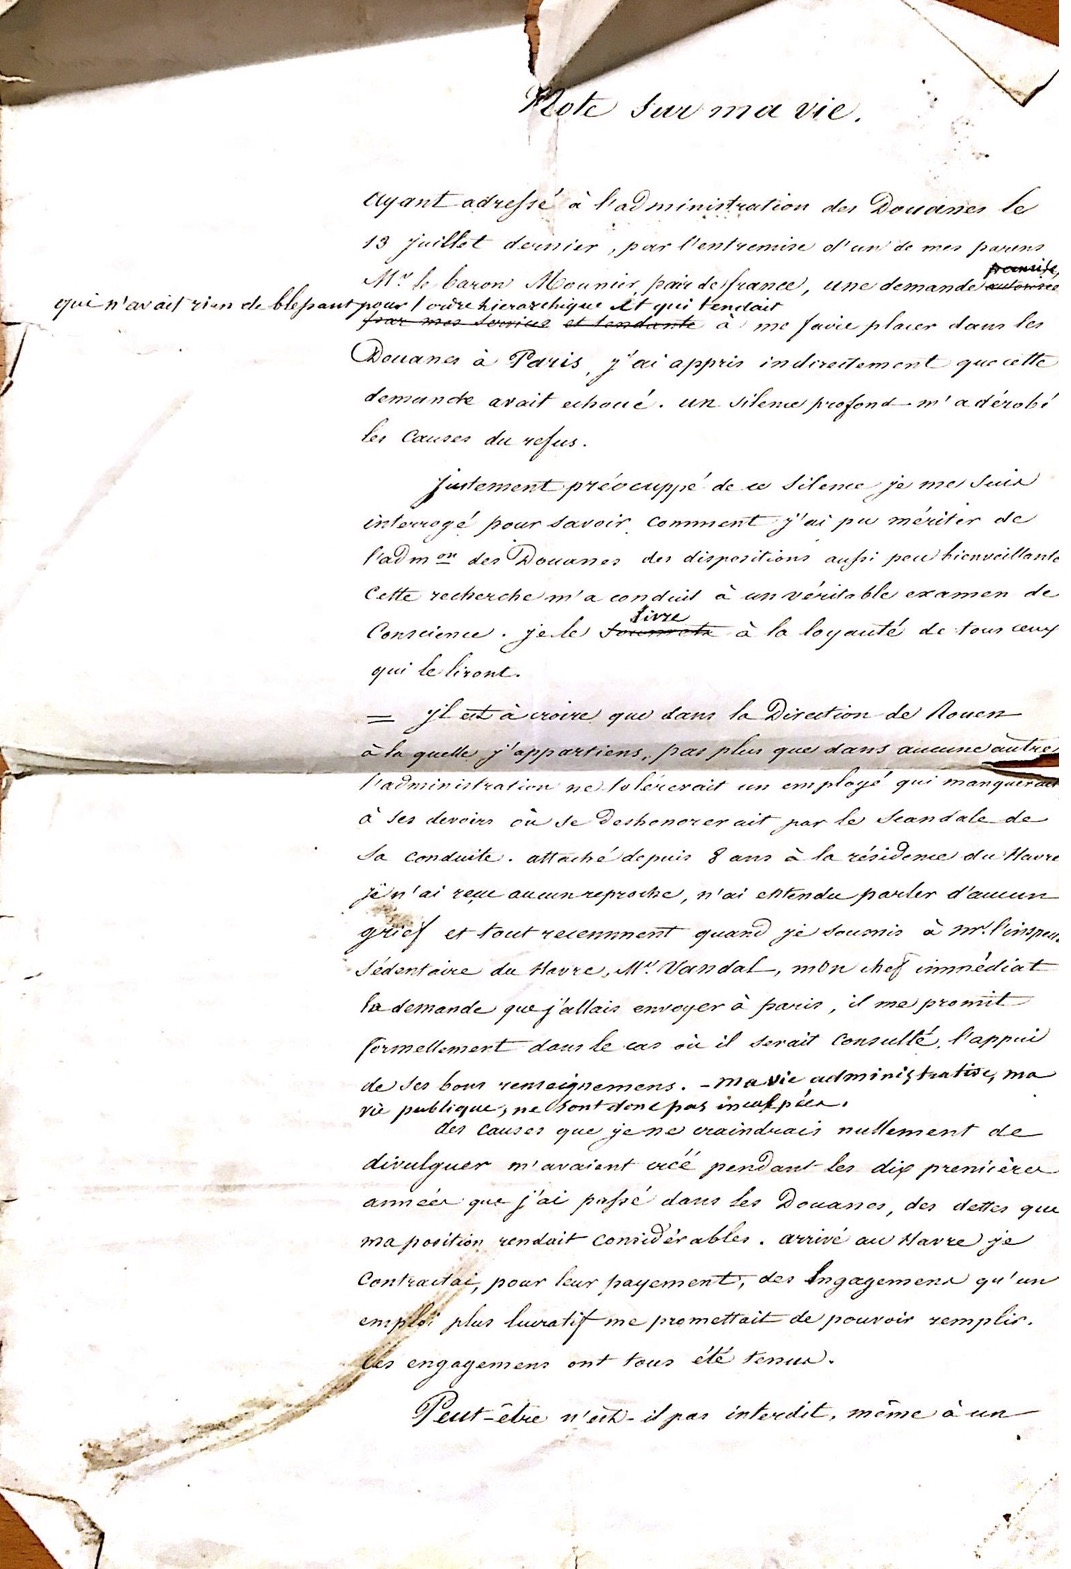 Note sur ma vie.
ayant adressé à l'administration des Douanes le
13 juillet dernier, par l'entremise d'un de mes parens
Mr. le baron Mounier, pair de france, une demande
qui n'avait rien de blessant pour l'ordre hierarchique et qui tendait
par mes services et tendante à me faire placer dans les
Douanes à Paris, j'ai appris indirectement que cette
demande avait echoué. un silence profond m'a dérobé
les causes du refus.
justement préoccuppé de ce silence je me suis
interrogé pour savoir comment j'ai pu mériter de
l'admon des Douanes des dispositions aussi peu bienveillante
Cette recherche m'a conduit à un véritable examen de
livre
Conscience. je le à la loyauté de tous ceux
qui le liront.
= jl est à croire que dans la Direction de Rouen
à la quelle j'appartiens, pas plus que dans aucune autre
l'administration ne tolérerait un employé qui manquerait
à ses devoirs où se deshonorerait par le scandale de
sa conduite. attaché depuis 8 ans à la résidence du Havre
je n'ai reçu aucun reproche, n'ai entendu parler d'aucun
grief et tout recemment quand je soumis à mr. l'inspec
sédentaire du Havre, Mr. Vandal, mon chef immédiat
la demande que j'allais envoyer à paris, il me promit
formellement dans le cas où il serait consulté, l'appui
de ses bons renseignemens. - ma vie administrative, ma
vie publique, ne sont donc pas inculpées.
des causes que je ne craindrais nullement de
divulguer m'avaient créé pendant les dix premières
années que j'ai passé dans les Douanes, des dettes que
ma position rendait considérables. arrivé au Havre je
contractai, pour leur payement, des Engagemens qu'un
emploi plus lucratif me promettait de pouvoir remplir.
Ces engagemens ont tous été tenus.
Peut-être n'est-il pas interdit, même à un